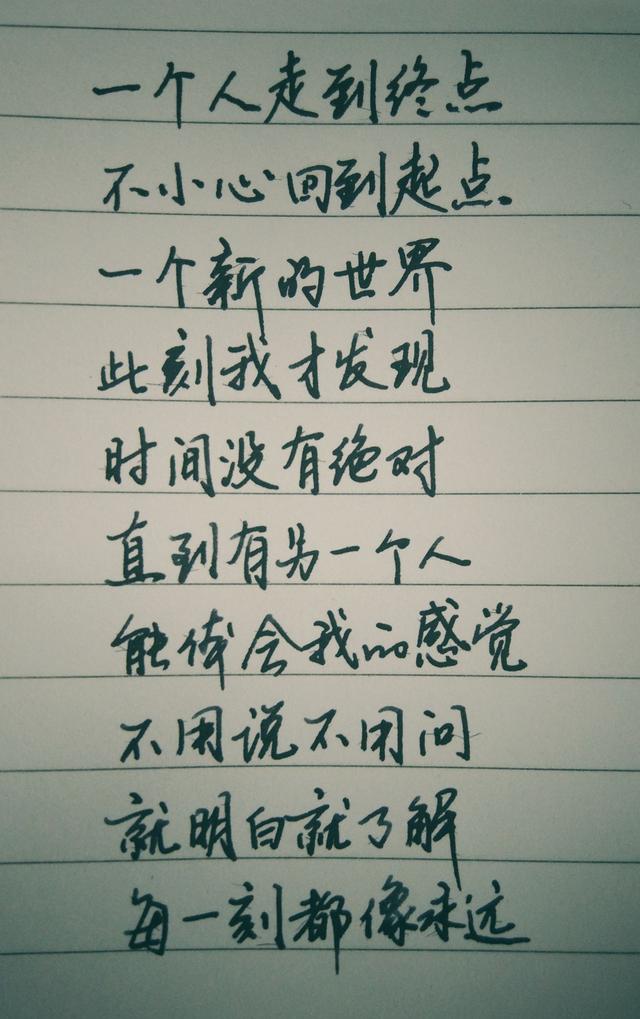 一个人走到终点
不小心回到起点
一个新的世界
此刻我才发现
时间没有绝对
直到有另一个人
能体会我的感觉
不用说不用问
就明白就了解
每一刻都像永远